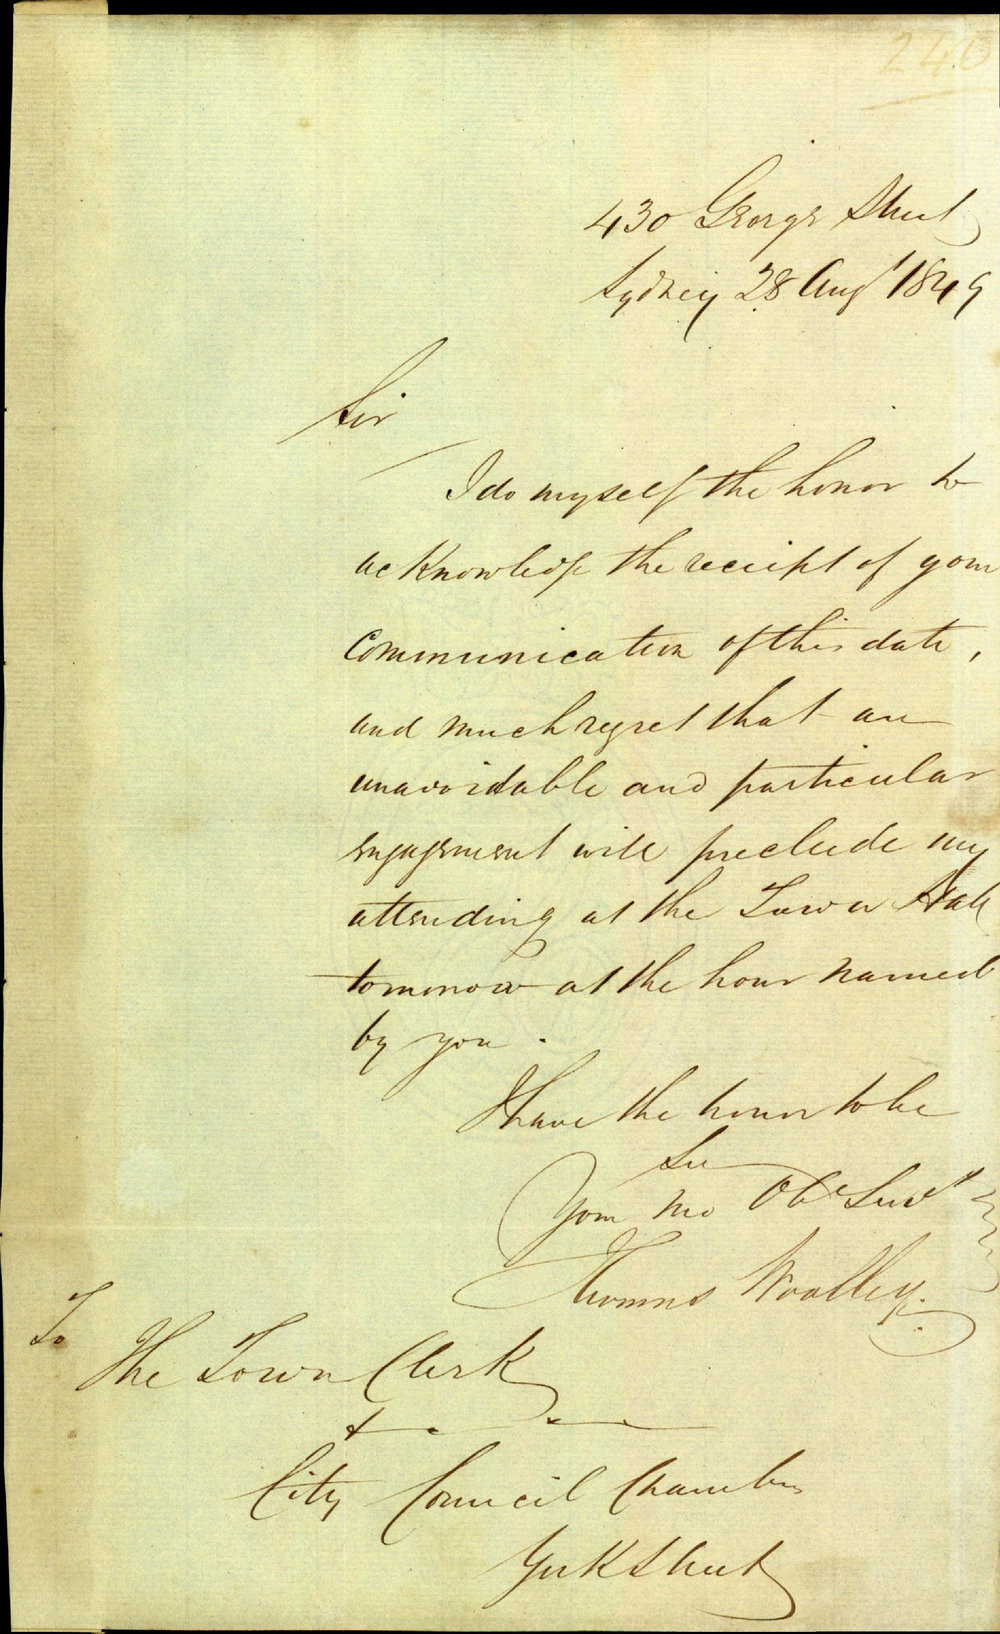 240
430 George Street
Sydney 28 Augt 1849
Sir
I do myself the honor to
acknowledge the receipt of your
communication of this date,
and much regret that an
unavoidable and particular
engagement will preclude my
attending at the Town Hall
tomorrow at the hour named
by you.
I have the honor to be
Sir
Your Mo Obt Servt
Thomas Woolley.
To
The Town Clerk
City Council Chambers
York Street